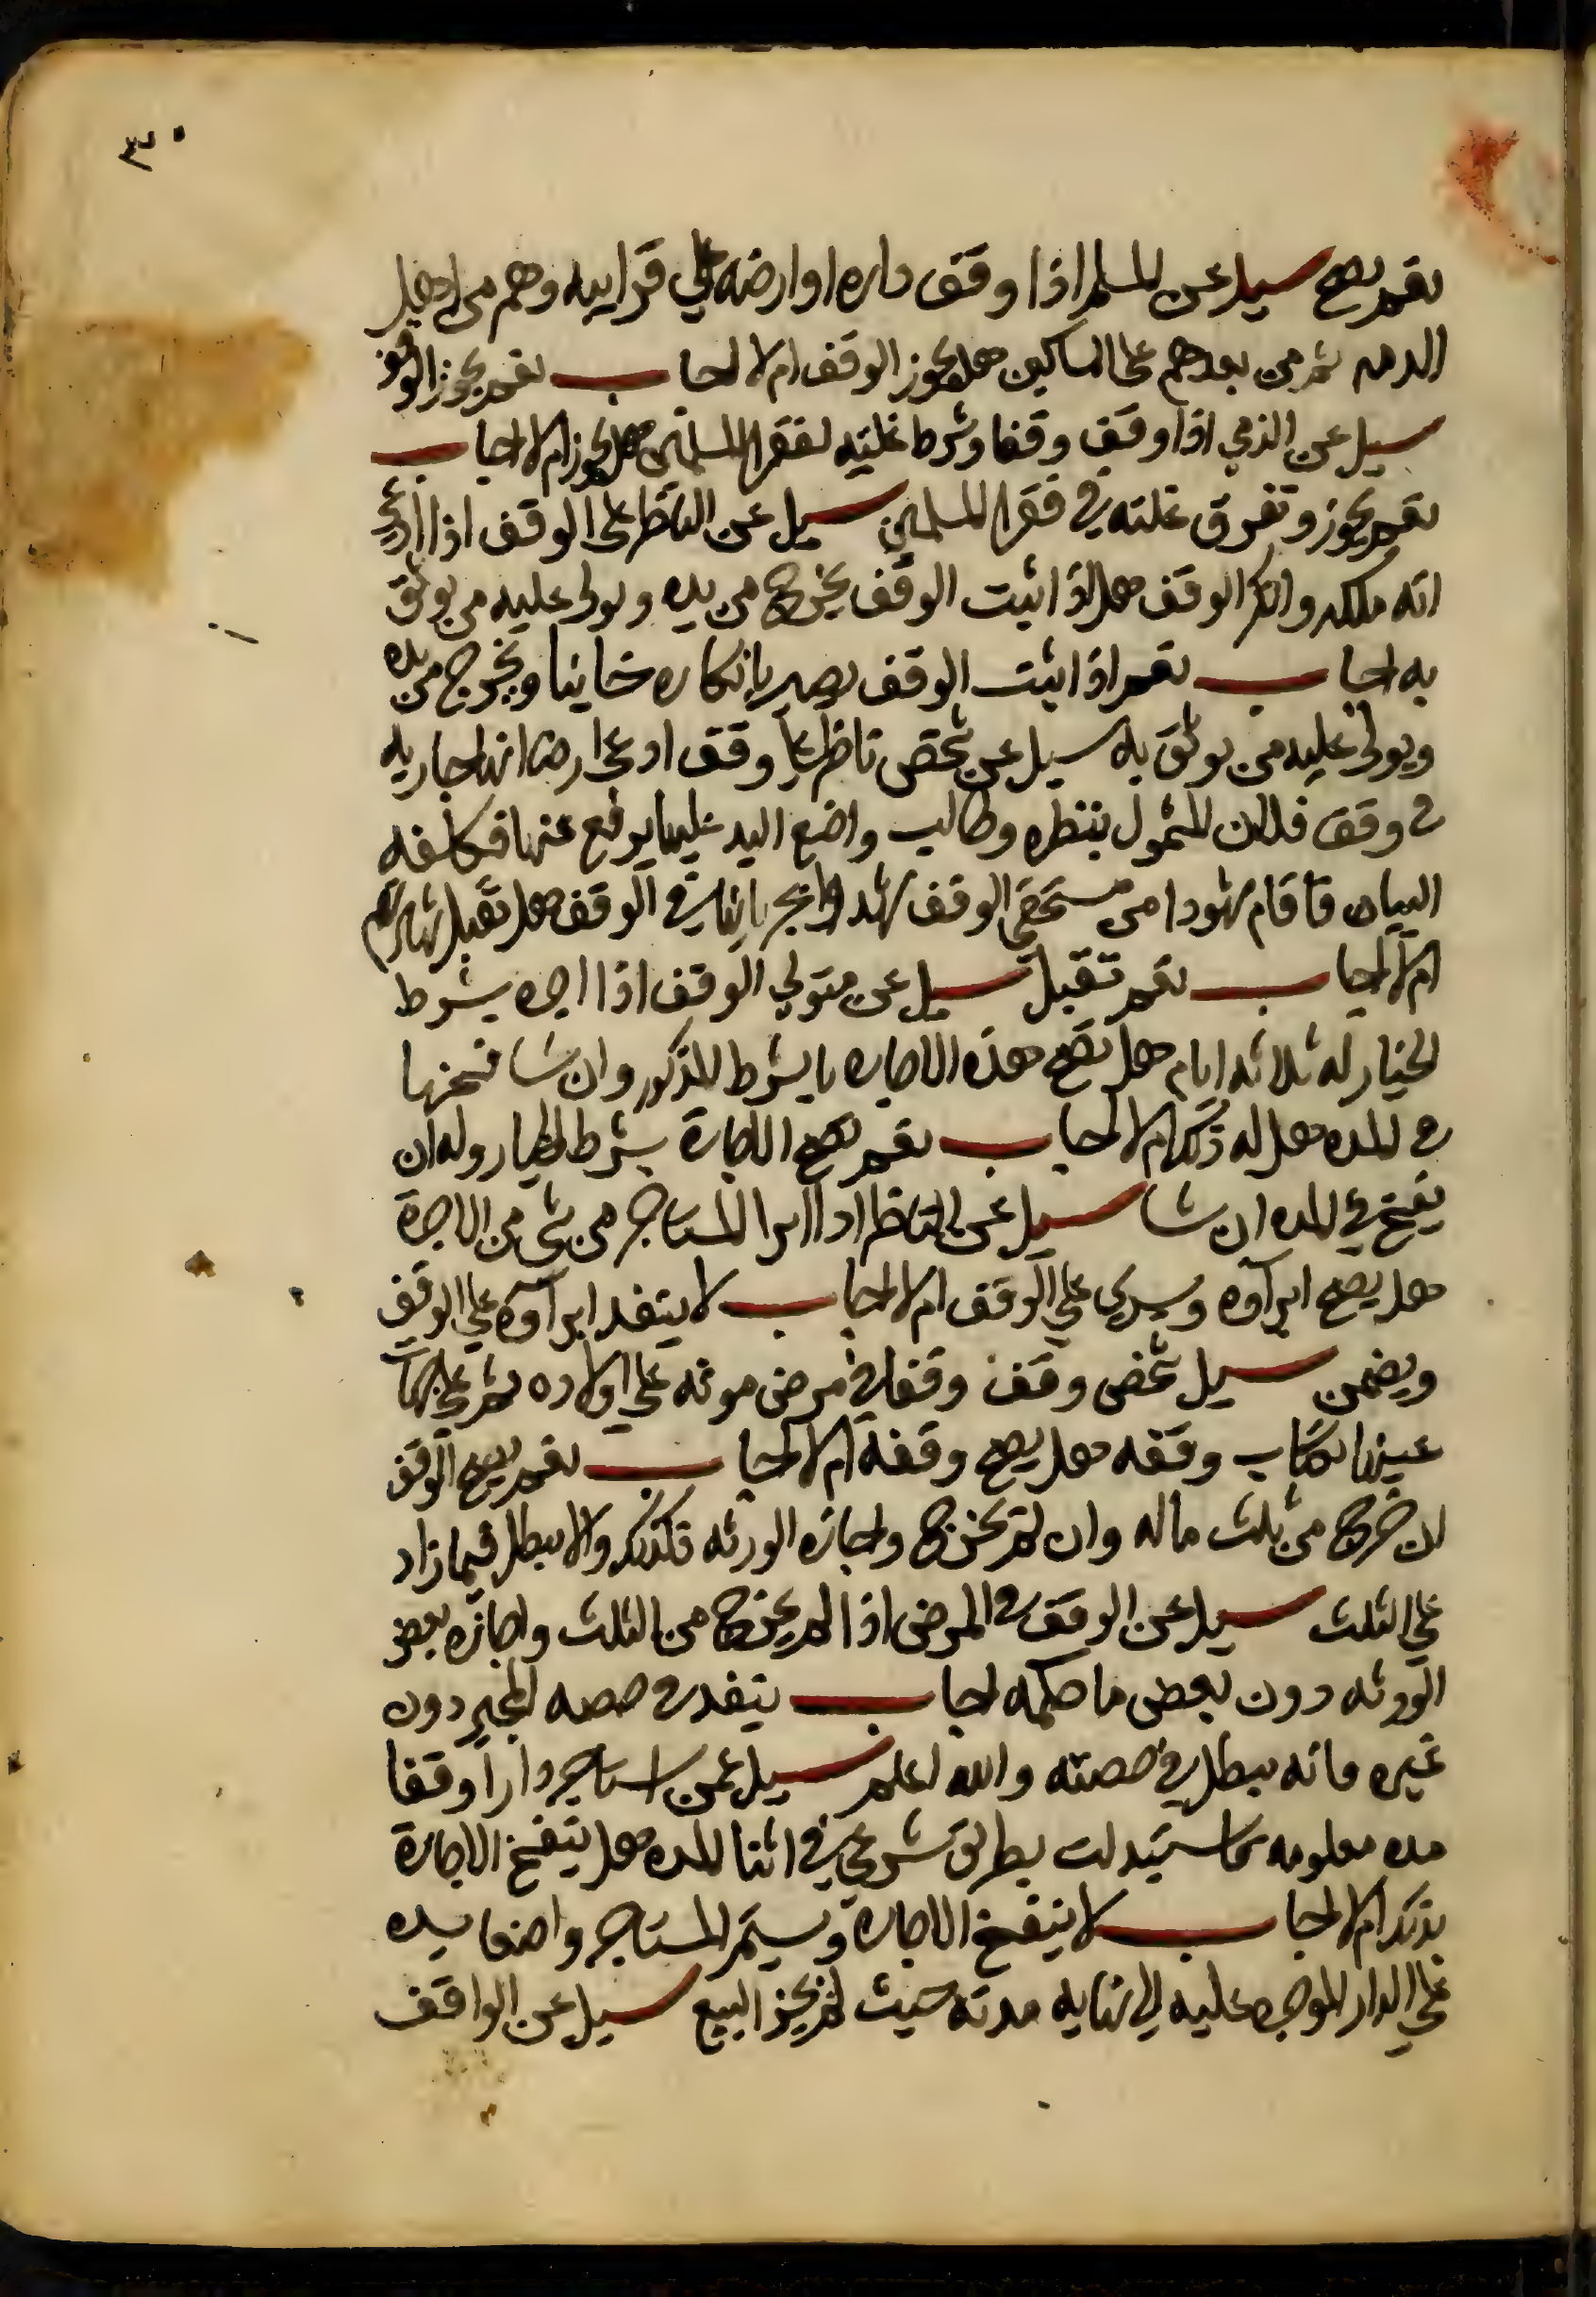 ٣٠
نعم يصح سيل عن المسلم اذا وقف داره او ارضه علي قرابيه وهم من اهل
الدمه ثم من بعدهم على المساكين هل يجوز الوقف ام لا اجاب نعم يجوز الوقف
سيل عن الذمي اذا وقف وقفا وشرط غلته لفقرا المسلمين هل يجوز ام لا اجاب
نعم يجوز وتفرق غلته في فقرا المسلمين سيل عن الناظر على الوقف اذا ادعي
انه ملكه وانكر الوقف هل اذا اثبت الوقف يخرج من يده ويولى عليه من يوثق
به اجاب نعم اذا اثبت الوقف يصير بانكاره خاينا ويخرج من يده
ويولى عليه من يوثق به سيل عن شخص ناظر علي وقف ادعى ارضا انها جاريه
في وقف فلان المشمول بنظره وطالب واضع اليد عليها يرفع عنها فكلفه
البيان فاقام شهودا من مستحقي الوقف شهدوا بجريانها في الوقف هل تقبل شهادتهم
ام لا اجاب نعم تقبل سيل عن متولي الوقف اذا اجره بشرط
الخيار له ثلاثه ايام هل تصح هذه الاجاره بالشرط المذكور وان شا فسخها
في المده هل له ذلك ام لا اجاب نعم تصح الاجارة بشرط الخيار وله ان
يفسخ في المده ان شا سيل عن الناظر اذا ابرا المستاجر من شي من الاجرة
هل يصح ابرآوه ويسري علي الوقف ام لا اجاب لا ينفد ابرآوه علي الوقف
ويضمن سيل شخص وقف وقفا في مرض موته علي اولاده ثم علي جهات
عينها بكتاب وقفه هل يصح وقفه ام لا اجاب نعم يصح الوقف
ان خرج من ثلث ماله وان لم يخرج واجازه الورثه فكذلك والا يبطل فيما زاد
علي الثلث سيل عن الوقف في المرض اذا لم يخرج من الثلث واجازه بعض
الورثه دون بعض ما حكمه اجاب ينفد في حصه المجيز دون
غيره فانه يبطل في حصته والله اعلم سيل عمن استاجر دارا وقفا
مده معلومه فاستبدلت بطريق شرعي في اثنا المده هل ينفسخ الاجارة
بذلك ام لا اجاب لا ينفسخ الاجارة ويستمر المستاجر واضعا يده
علي الدار الموجره عليه الي نهايه مدته حيث لم يجز البيع سيل عن الواقف